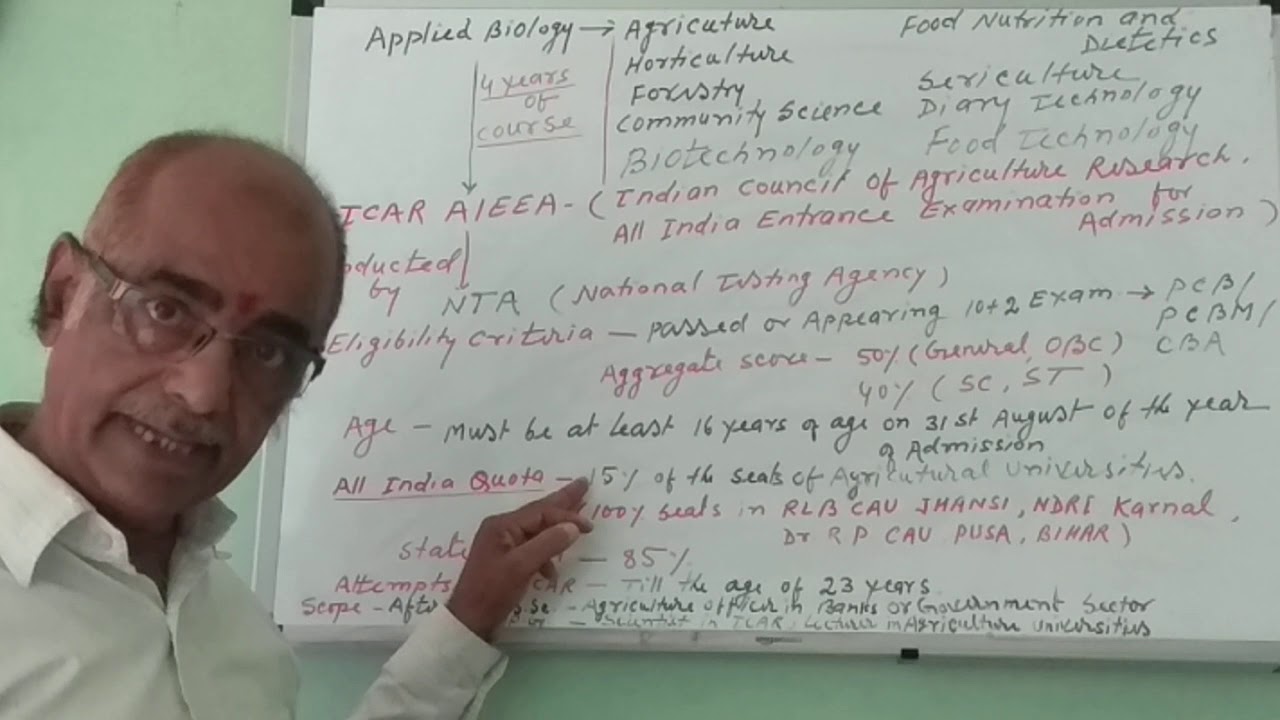 Applied Biology → Agricuture
Horticulture
Foristry
Community Science
Biotechnology
Food Nutrition and
Dietetics
Sericulture
Diary Technology
Food Technology
4 years
of
course
ICAR AIEEA - (Indian Council of Agriculture Research.
All India Entrance Examination for
Admission)
ducted
by NTA (National Testing Agency)
Eligibility Criteria - Passed or Appearing 10+2 Exam → PCB/
PCBM/
CBA
Aggregate score - 50% (General, OBC)
40% (SC, ST)
Age - Must be at least 16 years of age on 31st August of the year
of Admission
All India Quota - 15% of the seats of Agricutural Universities.
100% seats in RLB CAU JHANSI, NDRI Karnal,
Dr RP CAU PUSA, BIHAR)
State - 85%
Attempts CAR - Till the age of 23 years.
Scope - After B.Sc. - Agriculture officer in Banks or Government Sector
- Scientist in ICAR, Lecturer in Agriculture Universities